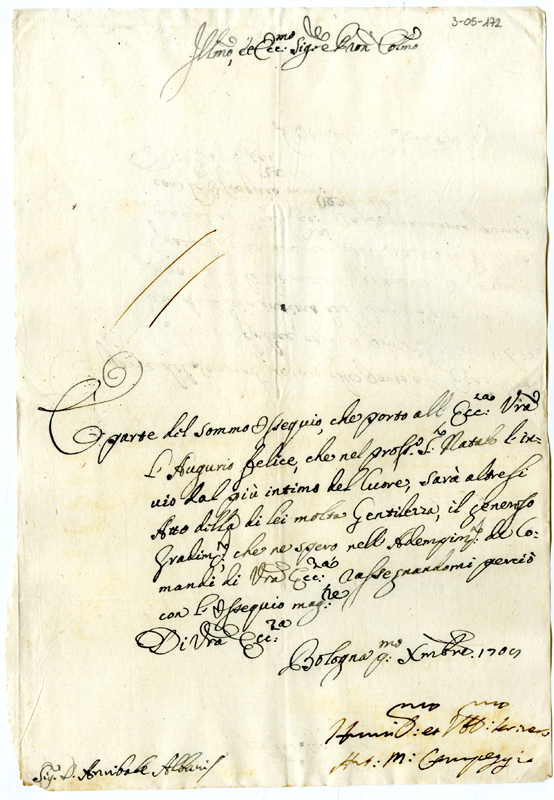 3-05-172
Illmo, et Ecc:mo Sig:re Pron Colmo
È parte del sommo Ossequio, che porto all' Ecc:za Vra
l'Augurio felice, che nel pross:o S:o Natale l'in-
uio dal più intimo del Cuore; sarà altresi
Atto della di lei molta Gentilezza, il generoso
Gradim:to, che ne spero nell' Adempim:to de Co-
mandi di Vra Ecc:za rassegnandomi perciò
con l'Ossequio mag:re
Di Vra Ecc:za
Bologna p:mo Xmbre 170
Humil:mo et
Ant: M: Campeggi
Sig:r D. Annibale Albani